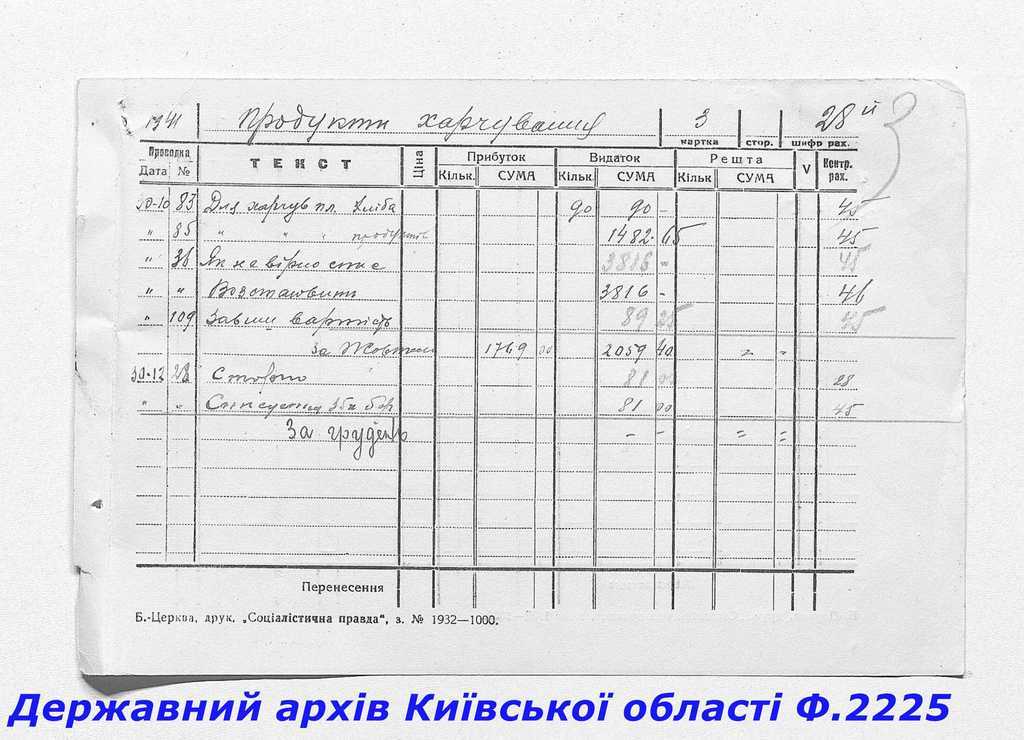 1941 Продукти харчування 3 28й 3
картка стор. шифр рах.
Просодка ТЕКСТ Ціна Прибуток Видаток Решта V Контр. рах.
Дата № Кільк. СУМА Кільк. СУМА Кільк СУМА
30-10 83 Для харчув пл. хліба 90 90 - 45
" 85 " " " продуктів 1482 65 45
" 36 Як невірно 3816 - 45
" " Возстановить 3816 - 46
" 109 вартість 89 25 45
За Жовтень 1769 00 2059 40 = =
30-12 28 Сторно 81 00 28
" " 81 00 45
За грудень - - = =
Перенесення
Б.-Церква, друк. „Соціалістична правда", з. № 1932—1000.
Державний архів Київської області Ф.2225